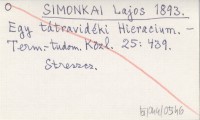 SIMONKAI Lajos 1893.
Egy tátravidéki Hieracium. –
Term. tudom. Közl. 25: 439.
Streszcz.